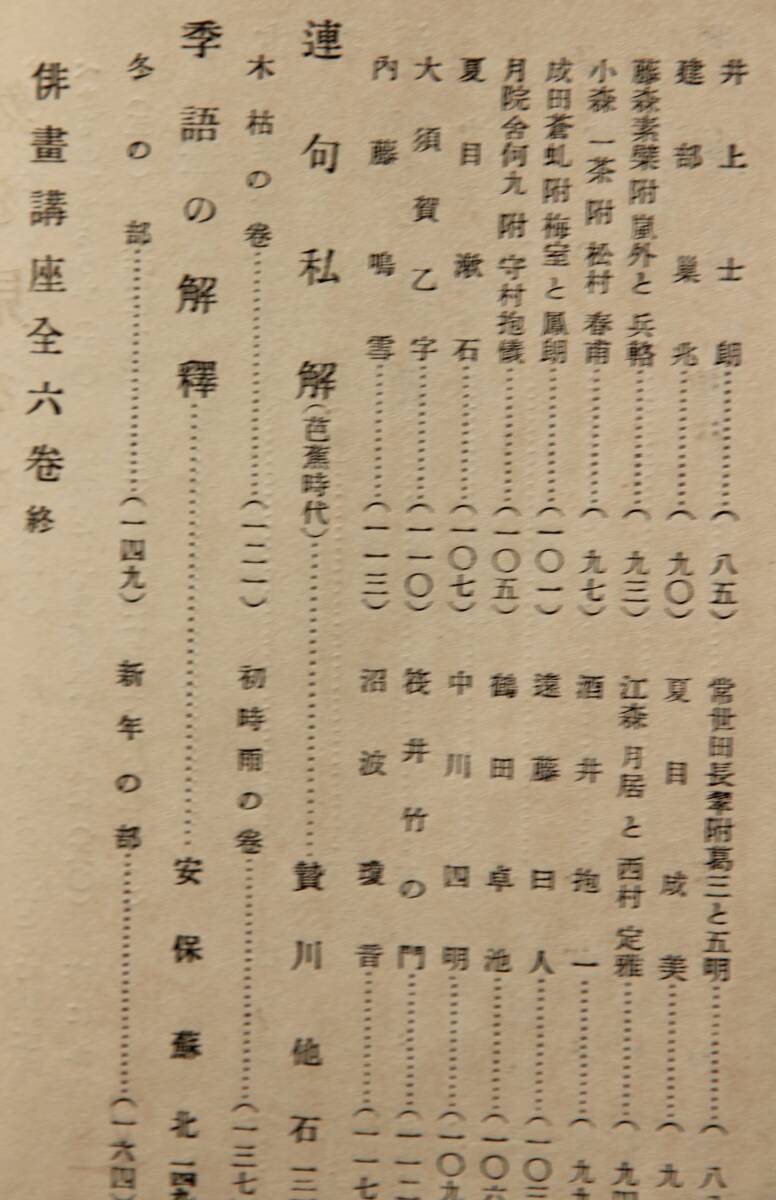 井上士朗…………(八五) 常世田長翠附葛三と五明…………(八
建部巣兆…………(九〇) 夏目成美…………(九
藤森素檗附嵐外と兵輅…………(九三) 江森月居と西村定雅…………(九
小森一茶附松村春甫…………(九七) 酒井抱一…………(九九
成田蒼虬附梅室と鳳朗…………(一〇一) 遠藤曰人…………(一〇三
月院舍何九附守村抱儀…………(一〇五) 鶴田卓池…………(一〇六
夏目漱石…………(一〇七) 中川四明…………(一〇九
大須賀乙字…………(一一〇) 筏井竹の門…………(一一二
內藤鳴雪…………(一一三) 沼波瓊音…………(一一七
連句私解(芭蕉時代)…………贄川他石
木枯の卷…………(一二一) 初時雨の卷…………(一三七
季語の解釋…………安保蘇北 一四九
冬の部…………(一四九) 新年の部…………(一六四)
俳畫講座全六卷 終